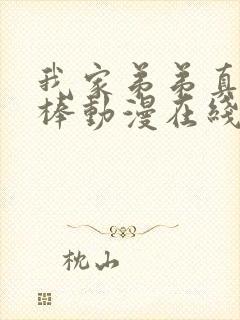 我家弟弟真
棒動漫在綫
枕山